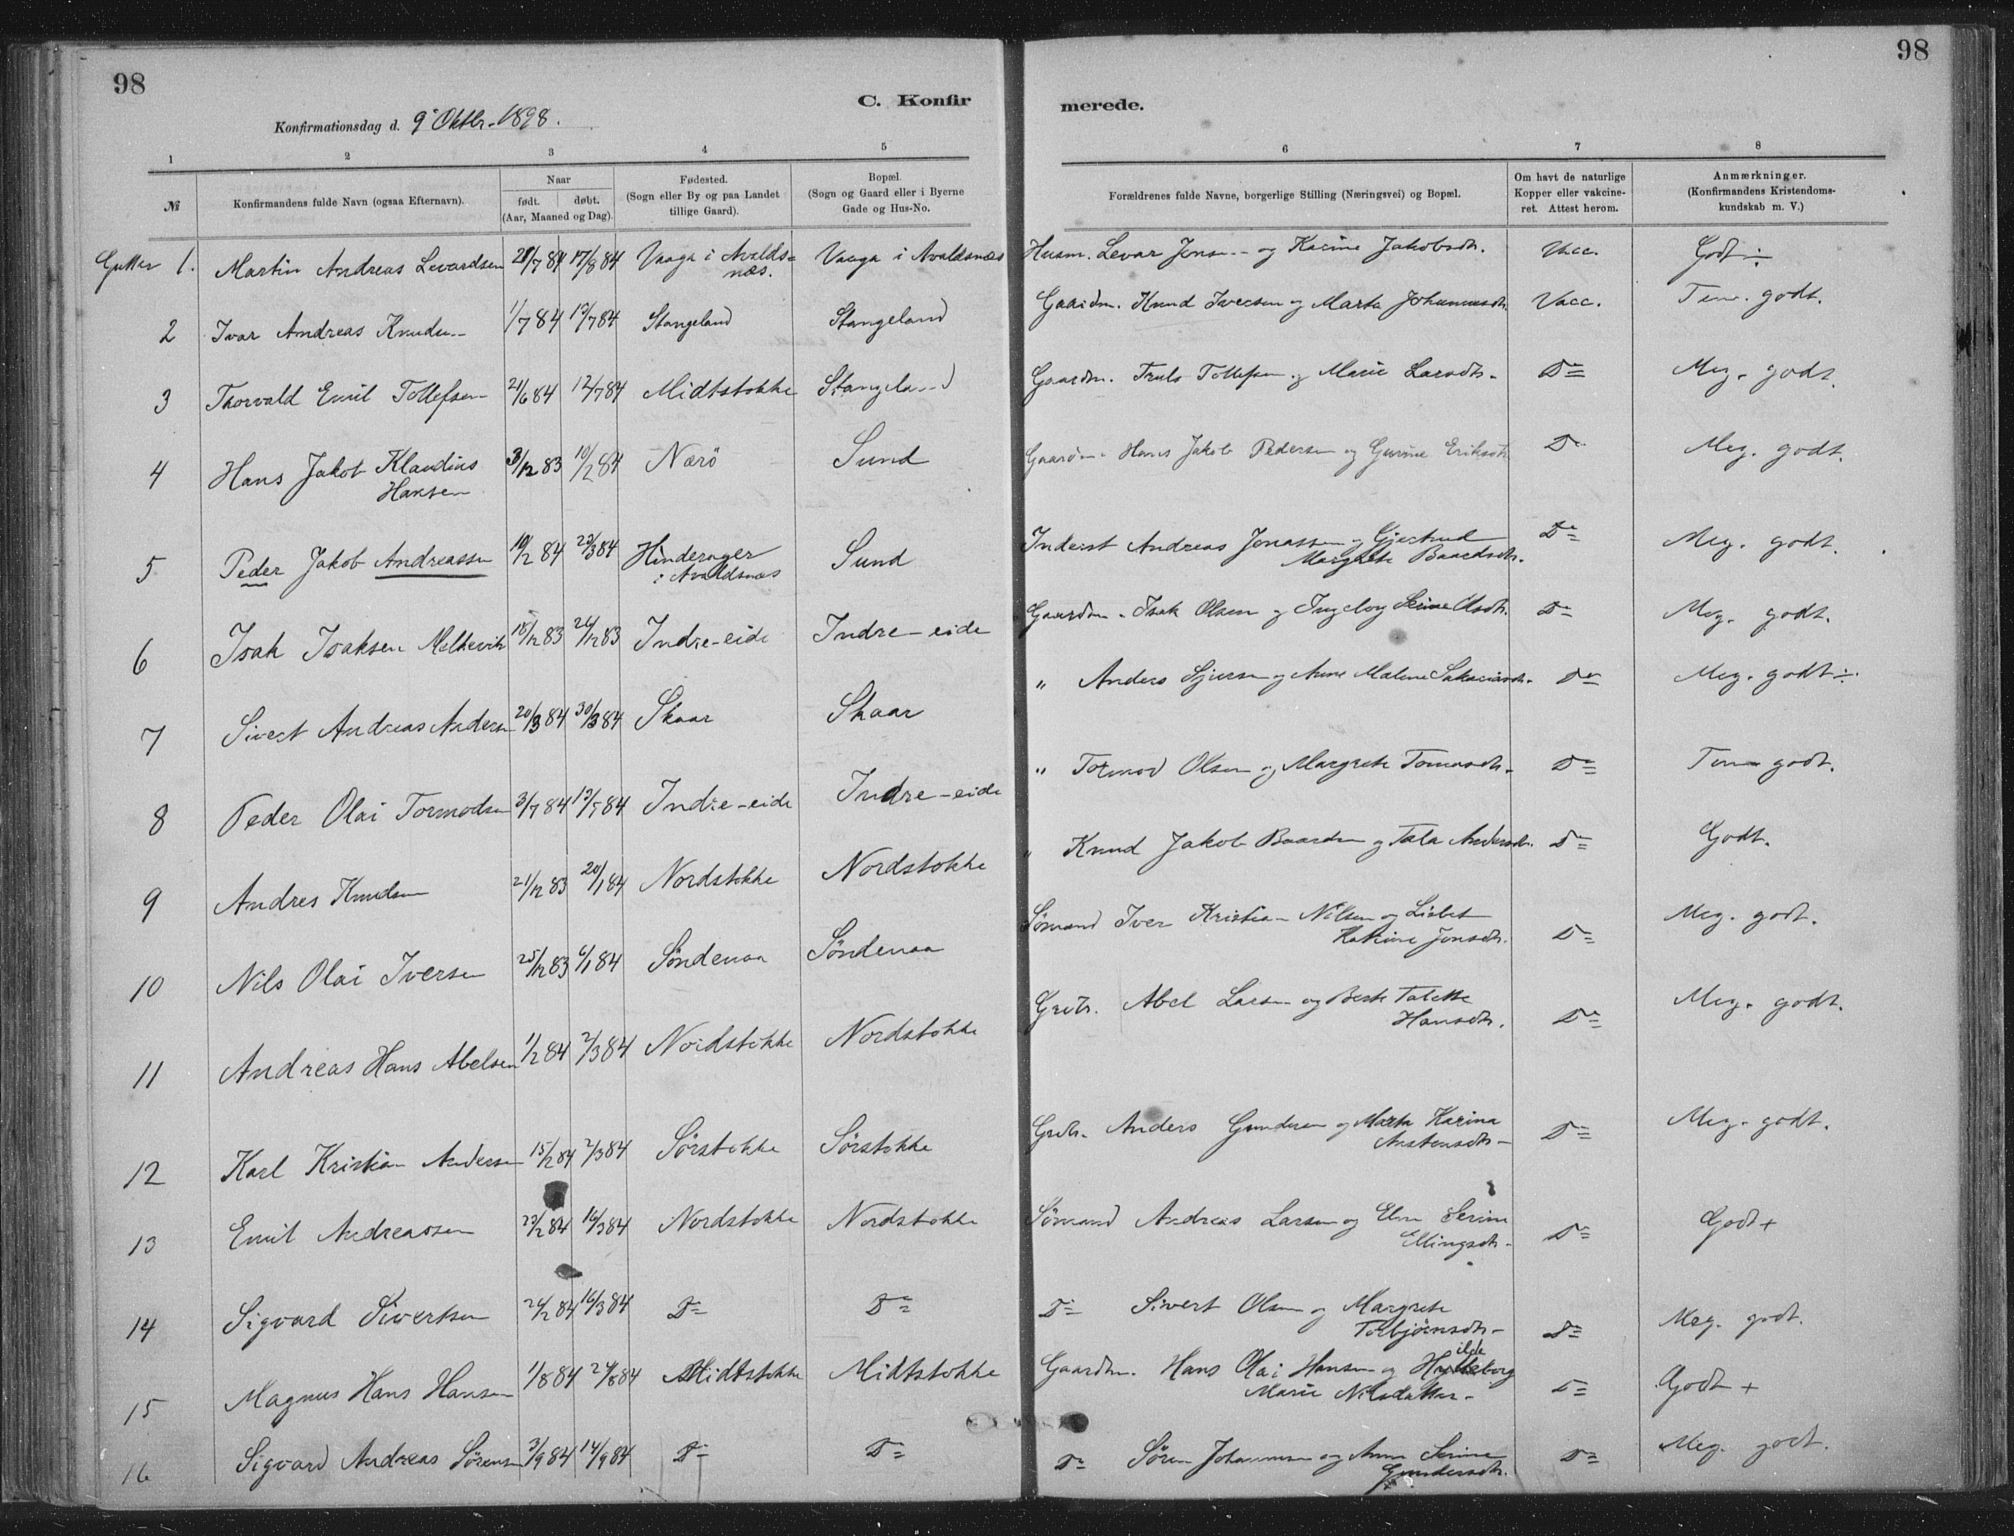 98
98
C. Konfir
merede.
Konfirmationsdag d. 9' Oktbr. 1898.
1 2 3 4 5 6 7 8
№ Konfirmandens fulde Navn (ogsaa Efternavn). Naar født. døbt. (Aar, Maaned og Dag). Fødested. (Sogn eller By og paa Landet tillige Gaard). Bopæl. (Sogn og Gaard eller i Byerne Gade og Hus-No. Forældrenes fulde Navne, borgerlige Stilling (Næringsvei) og Bopæl. Om havt de naturlige Kopper eller vakcineret. Attest herom. Anmærkninger. (Konfirmandens Kristendomskundskab m. V.)
Gutter 1. Martin Andreas Levardsen 21/7 84 17/8 84 Vaaga i Avaldsnæs. Vaaga i Avaldsnæs Husm. Levar Jensen og Karine Jakobsdtr. Vacc. Godt ÷
2 Ivar Andreas Knudsen 1/7 84 13/7 84 Stangeland Stangeland Gaardm. Knud Iversen og Marta Johannesdtr. Vacc. Tem. godt.
3 Thorvald Emil Tollefsen 21/6 84 12/7 84 Midtstokke Stangeland Gaardm. Truls Tollefsen og Marie Larsdtr. Do Meg. godt.
4 Hans Jakob Klaudius Hansen 3/12 83 10/2 84 Nærö Sund Gaardm. Hans Jakob Pedersen og Gurine Eriksdtr. Do Meg. godt.
5 Peder Jakob Andreassen 10/2 84 23/3 84 Hinderager i Avaldsnæs Sund Inderst Andreas Jonassen og Gjertrud Margrete Baardsdtr. Do Meg. godt.
6 Isak Isaksen Melkevik 15/12 83 26/12 83 Indre-eide Indre-eide Gaardm. Isak Olsen og Ingeborg Serine Olsdtr. Do Meg. godt.
7 Sivert Andreas Andersen 20/3 84 30/3 84 Skaar Skaar " Anders Sjursen og Anne Malene Sakariasdtr. Do Meg. godt ÷.
8 Peder Olai Tormodsen 3/7 84 13/7 84 Indre-eide Indre-eide " Tormod Olsen og Margrete Tomasdtr. Do Tem. godt.
9 Andres Knudsen 21/12 83 20/1 84 Nordstokke Nordstokke " Knud Jakob Baardsen og Tala Andersdtr. Do Godt.
10 Nils Olai Iversen 25/12 83 6/1 84 Söndenaa Söndenaa Sömand Iver Kristian Nilsen og Lisbet Katrine Jonsdtr. Do Meg. godt.
11 Andreas Hans Abelsen 1/2 84 2/3 84 Nordstokke Nordstokke Grdbr. Abel Larsen og Berte Talette Hansdtr. Do Meg. godt.
12 Karl Kristian Andersen 15/2 84 2/3 84 Sörstokke Sörstokke Grdbr. Anders Gundersen og Marta Karina Anstensdtr. Do Meg. godt.
13 Emil Andreassen 23/2 84 16/3 84 Nordstokke Nordstokke Sömand Andreas Larsen og Elen Serine Ellingsdtr. Do Godt +
14 Sigvard Sivertsen 24/2 84 16/3 84 Do Do Do Sivert Olsen og Margrete Torbjörnsdtr. Do Meg. godt.
15 Magnus Hans Hansen 1/8 84 24/8 84 Midtstokke Midtstokke Gaardm. Hans Olai Hansen og Hildeborg Marie Nilsdatter. Do Godt +
16 Sigvard Andreas Sörensen 3/9 84 14/9 84 Do Do Do Sören Johannessen og Anne Serine Gundersdtr. Do Meg. godt.